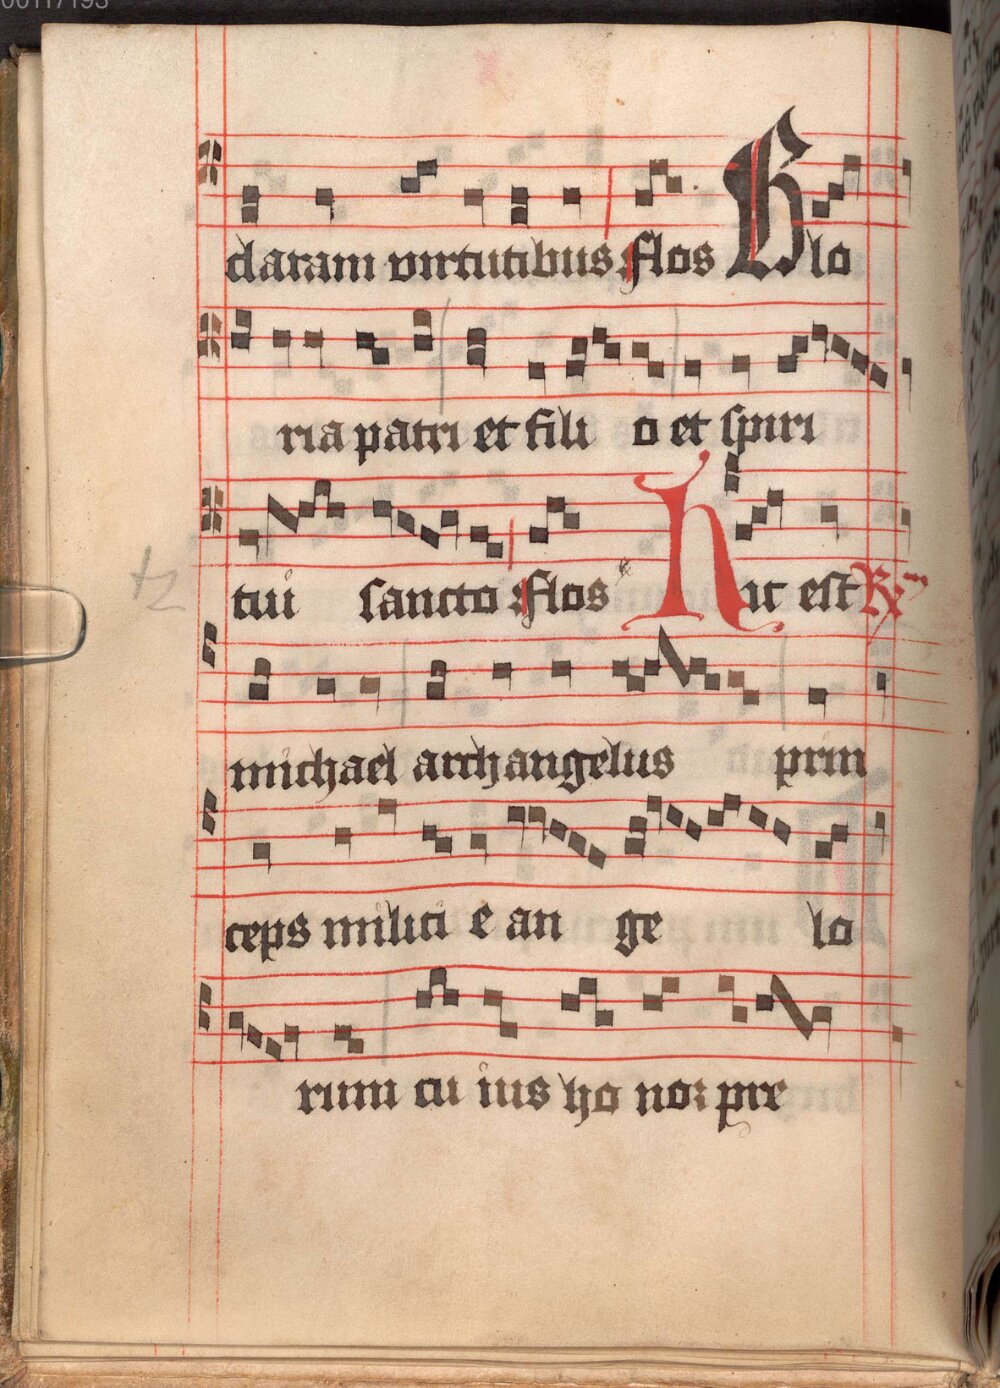 00117193
claram virtutibus flos Glo
ria patri et fili o et spiri
tui sancto flos Hic est R
michael archangelus prin
ceps milici e an ge lo
rum cu ius ho nor pre